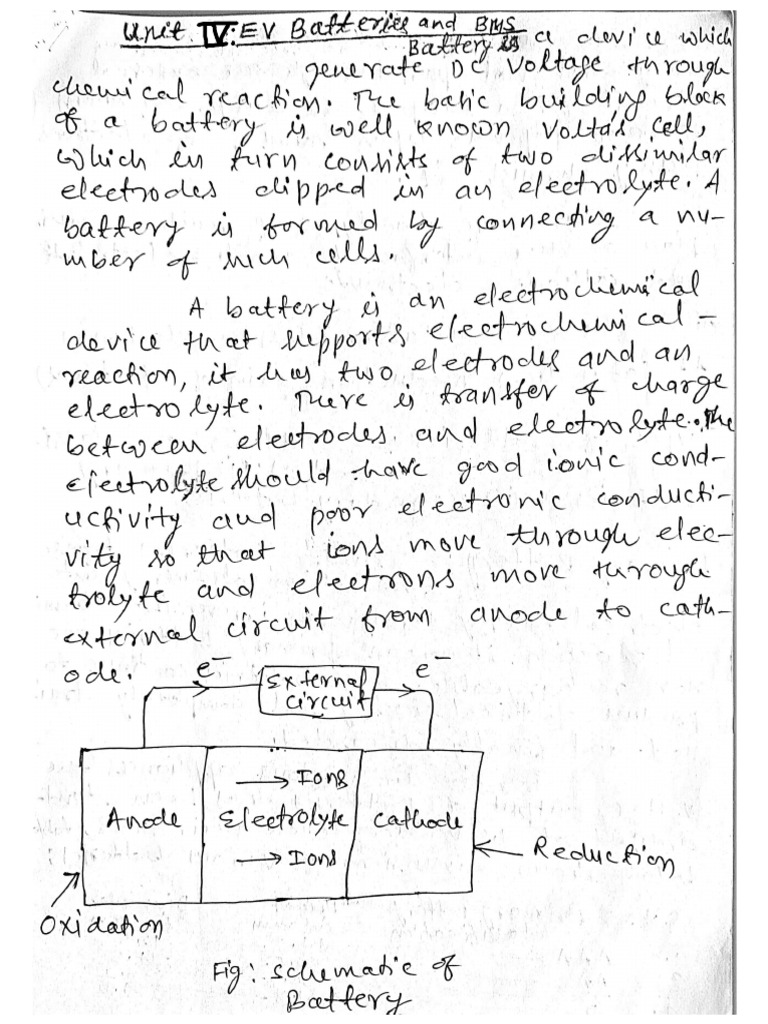 Unit IV: EV Batteries and BMS
Battery is a device which
generate DC Voltage through
chemical reaction. The basic building block
of a battery is well known Volta's cell,
which in turn consists of two dissimilar
electrodes dipped in an electrolyte. A
battery is formed by connecting a nu-
mber of such cells.
A battery is an electrochemical
device that supports electrochemical
reaction, it has two electrodes and an
electrolyte. There is transfer of charge
between electrodes and electrolyte. The
electrolyte should have good ionic cond-
uctivity and poor electronic conducti-
vity so that ions move through elec-
trolyte and electrons move through
external circuit from anode to cath-
ode.
e⁻ External circuit e⁻
→ Ions
Anode Electrolyte Cathode
→ Ions
Reduction
Oxidation
Fig: Schematic of
Battery